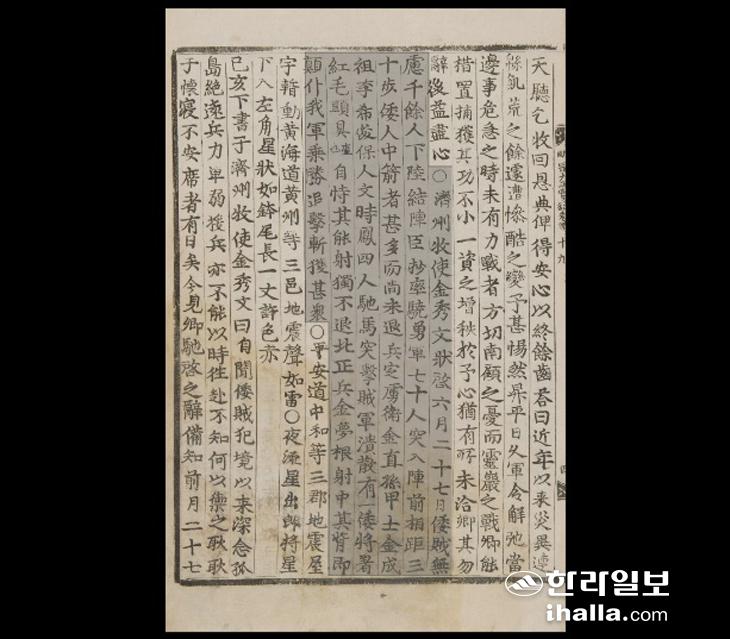 明宗大王實錄卷第十九
天聽乞收回恩典俾得安心以終餘齒答曰近年以來災異連
緜飢荒之餘遽遭慘酷之變予甚惕然昇平日久軍令解弛當
邊事危急之時未有力戰者方切南顧之憂而靈巖之戰卿能
措置捕獲其功不小一資之增秩於予心猶有所未洽卿其勿
辭後益盡心○濟州牧使金秀文狀啓六月二十七日倭賊無
慮千餘人下陸結陣臣抄率驍勇軍七十人突入陣前相距三
十步倭人中箭者甚多而尙未退兵定虜衛金直孫甲士金成
祖李希俊保人文時鳳四人馳馬突擊賊軍潰散有一倭將着
紅毛頭具自恃其能射獨不退北正兵金夢根射中其背卽
顚仆我軍乘勝追擊斬獲甚衆○平安道中和等三郡地震屋
宇暫動黃海道黃州等三邑地震聲如雷○夜流星出郞將星
下入左角星狀如鉢尾長一丈許色赤
己亥下書于濟州牧使金秀文曰自聞倭賊犯境以來深念孤
島絶遠兵力單弱援兵亦不能以時往赴不知何以禦之耿耿
于懷寢不安席者有日矣今見卿馳啓之辭備知前月二十七
한라일보
ihalla.com